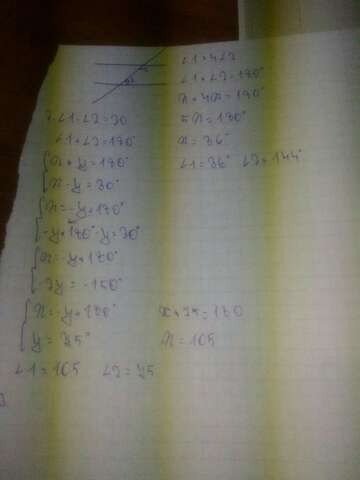 ∠1 = 4∠2
∠1 + ∠2 = 180°
x + 4x = 180°
5x = 180°
x = 36°
∠1 = 36° ∠2 = 144°
∠1 - ∠2 = 30
∠1 + ∠2 = 180°
x + y = 180°
x - y = 30°
x = -y + 180°
-y + 180° - y = 30°
x = -y + 180°
-2y = -150°
x = -y + 180°
y = 75°
x + 75 = 180
x = 105
∠1 = 105 ∠2 = 75